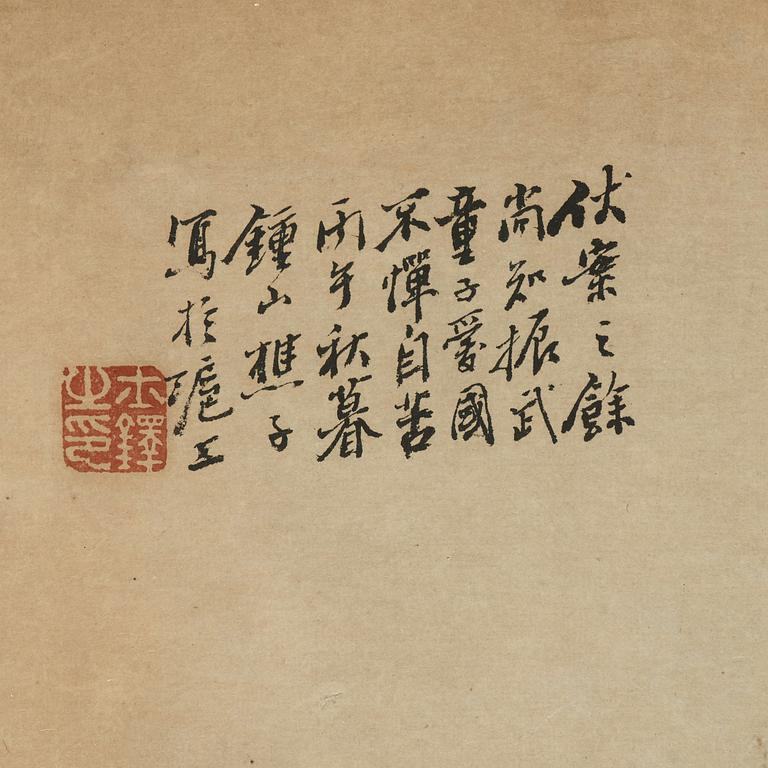 伏案之餘
尚知振武
童子愛國
不憚自苦
丙午秋暮
鍾山樵子
寫於滬上
木鐸
之印